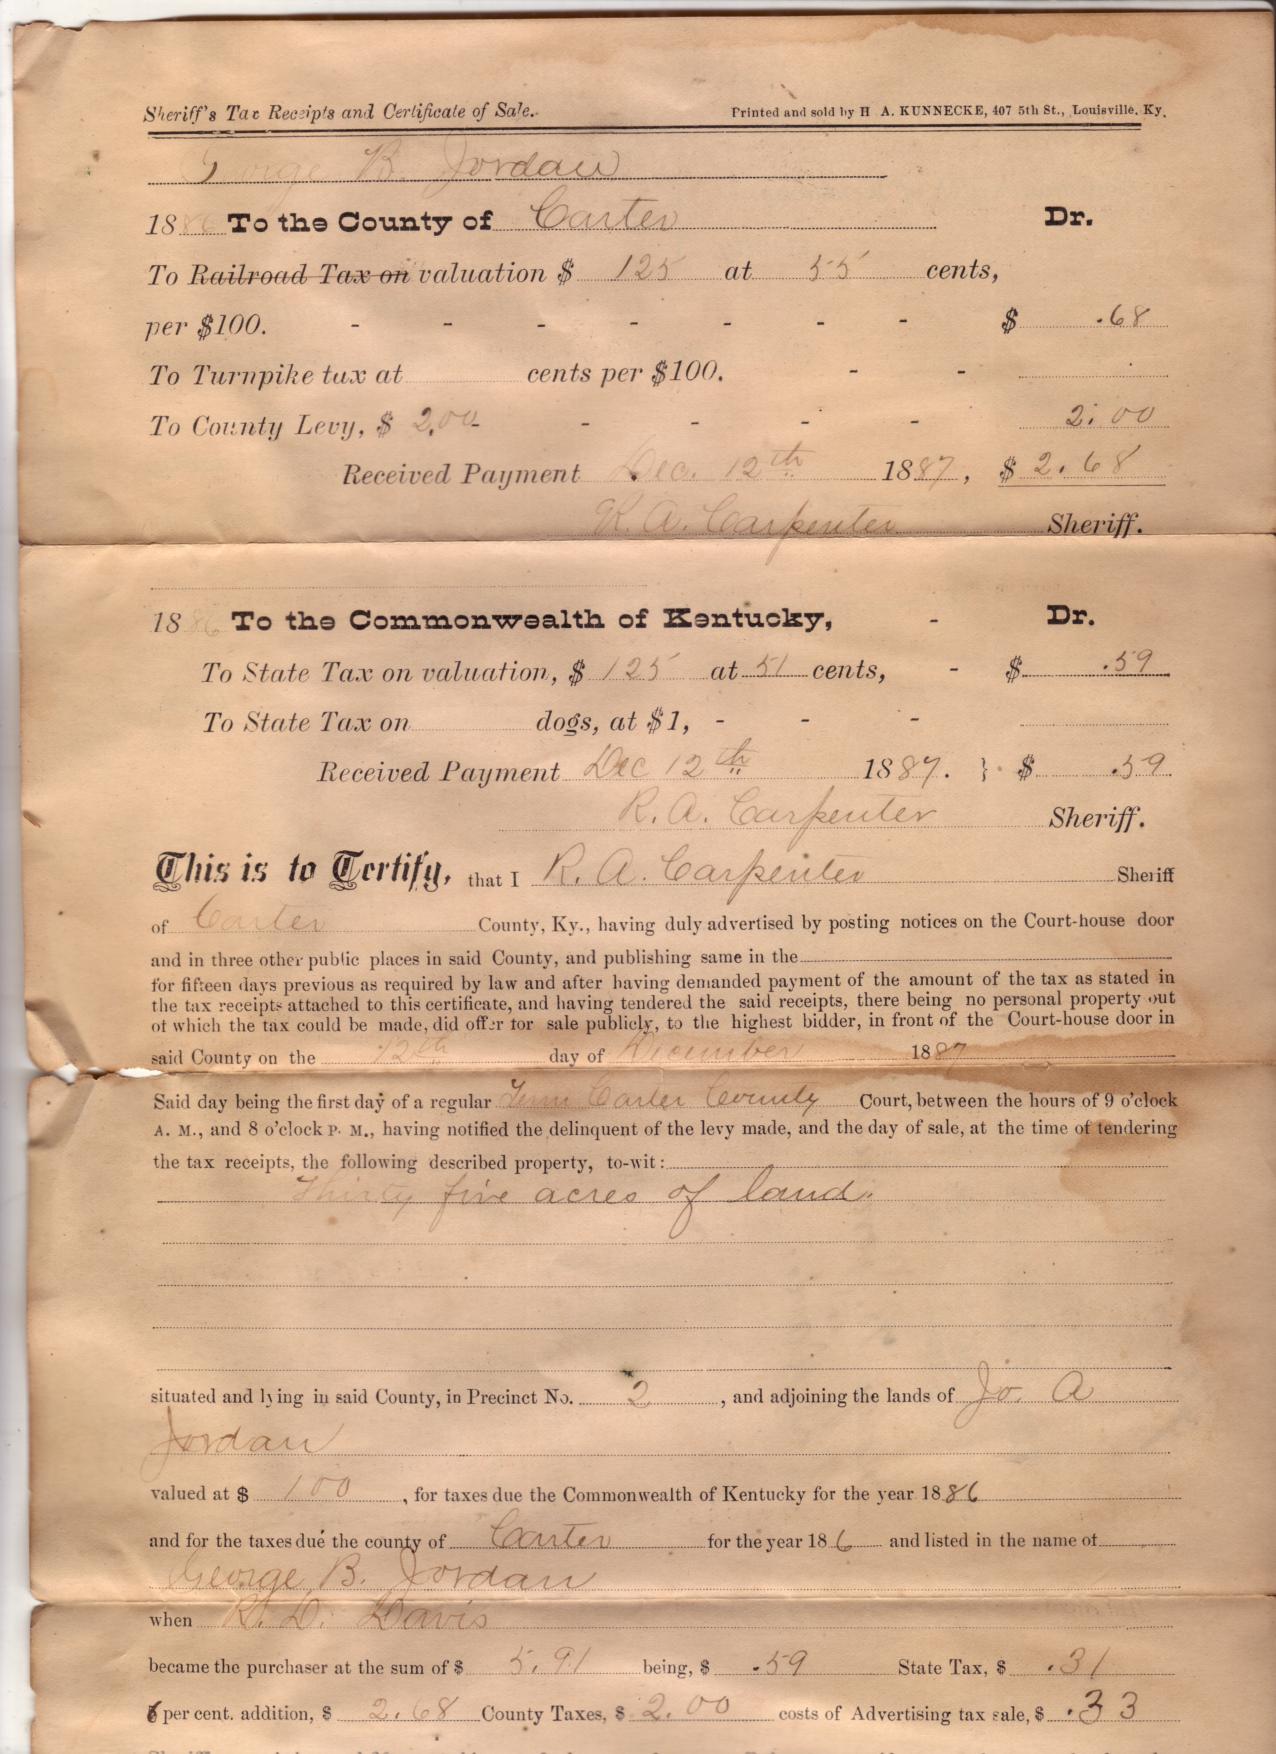 Sheriff's Tax Receipts and Certificate of Sale. Printed and sold by H A. KUNNECKE, 407 5th St., Louisville, Ky.
George B. Jordan
1886 To the County of Carter Dr.
To Railroad Tax on valuation $ 125 at 55 cents,
per $100. - - - - - - - $ .68
To Turnpike tax at cents per $100. - -
To County Levy, $ 2.00 - - - - - 2.00
Received Payment Dec. 12th 1887, $ 2.68
R. A. Carpenter Sheriff.
1886 To the Commonwealth of Kentucky, - Dr.
To State Tax on valuation, $ 125 at 51 cents, - $ .59
To State Tax on dogs, at $1, - - -
Received Payment Dec 12th 1887. } $ .59
R. A. Carpenter Sheriff.
This is to Certify, that I R. A. Carpenter Sheriff
of Carter County, Ky., having duly advertised by posting notices on the Court-house door
and in three other public places in said County, and publishing same in the
for fifteen days previous as required by law and after having demanded payment of the amount of the tax as stated in
the tax receipts attached to this certificate, and having tendered the said receipts, there being no personal property out
of which the tax could be made, did offer for sale publicly, to the highest bidder, in front of the Court-house door in
said County on the 12th day of December 1887
Said day being the first day of a regular Term Carter County Court, between the hours of 9 o'clock
A. M., and 8 o'clock P. M., having notified the delinquent of the levy made, and the day of sale, at the time of tendering
the tax receipts, the following described property, to-wit:
Thirty five acres of land.
situated and lying in said County, in Precinct No. 2, and adjoining the lands of Jo. A
Jordan
valued at $ 100, for taxes due the Commonwealth of Kentucky for the year 1886
and for the taxes due the county of Carter for the year 186 and listed in the name of
George B. Jordan
when R. D. Davis
became the purchaser at the sum of $ 5.91 being, $ .59 State Tax, $ .31
6 per cent. addition, $ 2.68 County Taxes, $ 2.00 costs of Advertising tax sale, $ .33